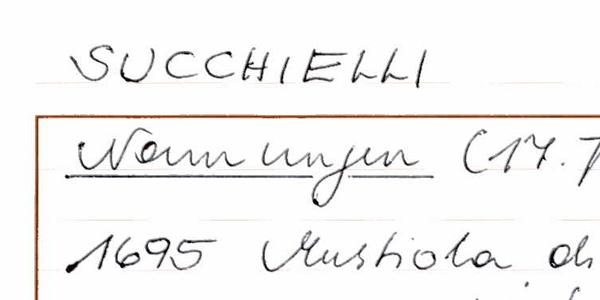 SUCCHIELLI
Nennungen (17.
1695 Mustiola di